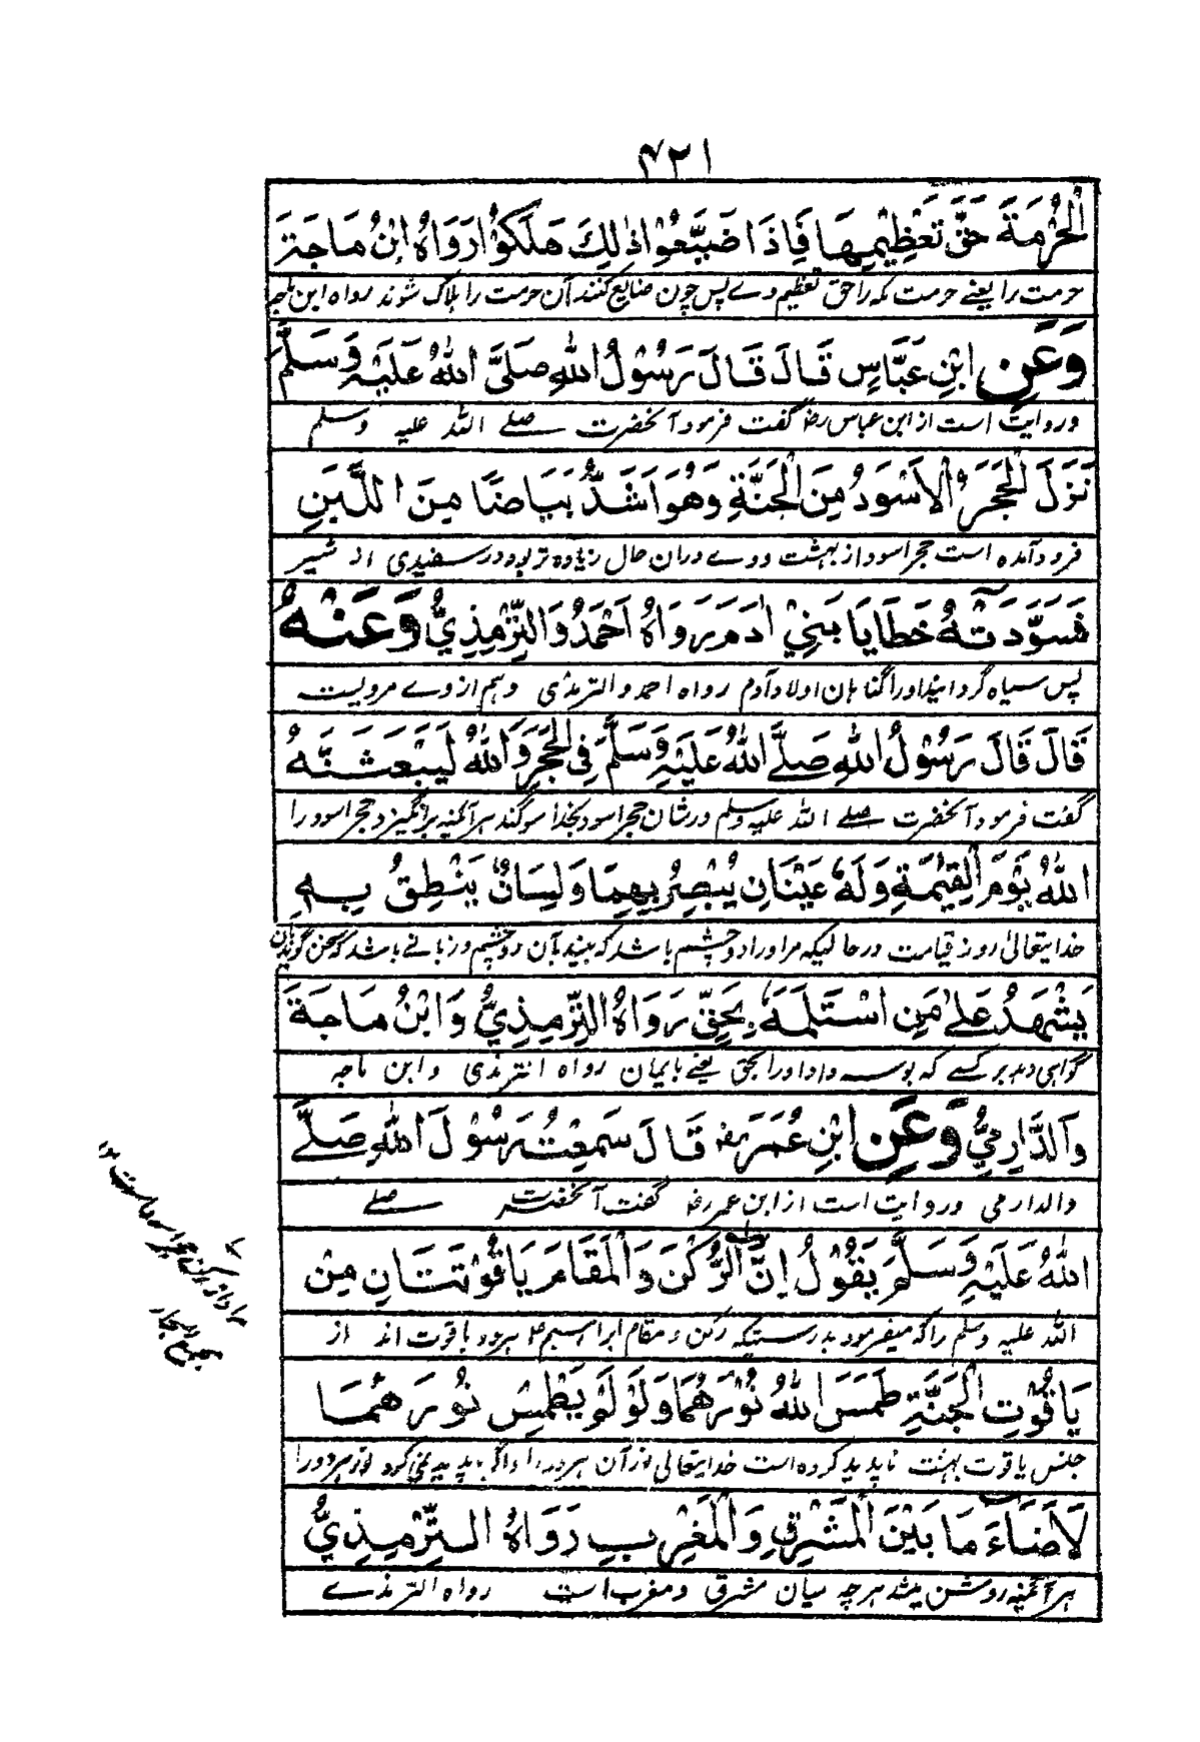 ۴۲۱
الْحُرْمَةَ حَقَّ تَعْظِيْمِهَا فَاِذَا ضَيَّعُوْا ذٰلِكَ هَلَكُوْا رَوَاهُ ابْنُ مَاجَةَ
حرمت را یعنے حرمت مکہ را حق تعظیم وے پس چون ضایع کنند آن حرمت را ہلاک شوند رواہ ابن ماجہ
وَعَنِ ابْنِ عَبَّاسٍ قَالَ قَالَ رَسُوْلُ اللهِ صَلَّى اللهُ عَلَيْهِ وَسَلَّمَ
وروایت است از ابن عباس رضہ گفت فرمود آنحضرت صلے اللہ علیہ وسلم
نَزَلَ الْحَجَرُ الْاَسْوَدُ مِنَ الْجَنَّةِ وَهُوَ اَشَدُّ بَيَاضًا مِنَ اللَّبَنِ
فرود آمدہ است حجر اسود از بہشت و وے دران حال زیادہ تر بود در سفیدی از شیر
فَسَوَّدَتْهُ خَطَايَا بَنِيْ اٰدَمَ رَوَاهُ اَحْمَدُ وَالتِّرْمِذِيُّ وَعَنْهُ
پس سیاہ گردانید او را گناہان اولاد آدم رواہ احمد والترمذی وہم از وے مرویست
قَالَ قَالَ رَسُوْلُ اللهِ صَلَّے اللهُ عَلَيْهِ وَسَلَّمَ فِى الْحَجَرِ وَاللهِ لَيَبْعَثَنَّهُ
گفت فرمود آنحضرت صلے اللہ علیہ وسلم در شان حجر اسود بخدا سوگند ہر آئنہ برانگیزد حجر اسود را
اللهُ يَوْمَ الْقِيٰمَةِ وَلَهٗ عَيْنَانِ يُبْصِرُ بِهِمَا وَلِسَانٌ يَنْطِقُ بِهٖ
خدایتعالیٰ روز قیامت در حالیکہ مر او را دو چشم باشد کہ بیند بآن دو چشم و زبانے باشد کہ سخن گوید بآن
يَشْهَدُ عَلٰى مَنِ اسْتَلَمَهٗ بِحَقٍّ رَوَاهُ التِّرْمِذِيُّ وَابْنُ مَاجَةَ
گواہی دہد بر کسے کہ بوسہ داد او را بحق یعنے بایمان رواہ الترمذی وابن ماجہ
وَالدَّارِمِيُّ وَعَنِ ابْنِ عُمَرَ رضہ قَالَ سَمِعْتُ رَسُوْلَ اللهِ صَلَّے
والدارمی وروایت است از ابن عمر رضہ گفت آنحضرت صلے
اللهُ عَلَيْهِ وَسَلَّمَ يَقُوْلُ اِنَّ الرُّكْنَ وَالْمَقَامَ يَاقُوْتَتَانِ مِنْ
اللہ علیہ وسلم را کہ میفرمود بدرستیکہ رکن و مقام ابراہیم ۴ ہر دو یاقوت اند از
يَاقُوْتِ الْجَنَّةِ طَمَسَ اللهُ نُوْرَهُمَا وَلَوْ لَمْ يَطْمِسْ نُوْرَهُمَا
جنس یاقوت بہشت ناپدید کردہ است خدایتعالی نور آن ہر دو را و اگر ناپدید نمی کرد نور ہر دو را
لَاَضَاءَ مَا بَيْنَ الْمَشْرِقِ وَالْمَغْرِبِ رَوَاهُ التِّرْمِذِيُّ
ہر آئنہ روشن میشد ہر چہ میان مشرق و مغرب است رواہ الترمذے